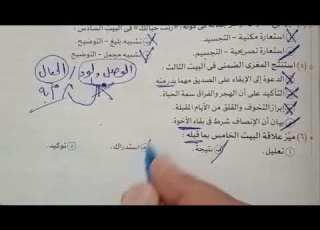 استعارة مكنية - التجسيد. تشبيه بليغ - التوضيح
استعارة تصريحية - التجسيم. تشبيه مجمل - التوضيح
(٥) استنتج المغزى الضمني في البيت الثالث.
الدعوة إلى الإبقاء على الصديق مهما بدر منه
التأكيد على أن الهجر والفراق سمة الحياة.
إبراز التخوف والقلق من الأيام المقبلة.
بيان أن الإنصاف شرط في بقاء الأخوة.
الوصل ولود الحال
(٦) ميز علاقة البيت الخامس بما قبله:
تعليل. نتيجة استدراك. توكيد.